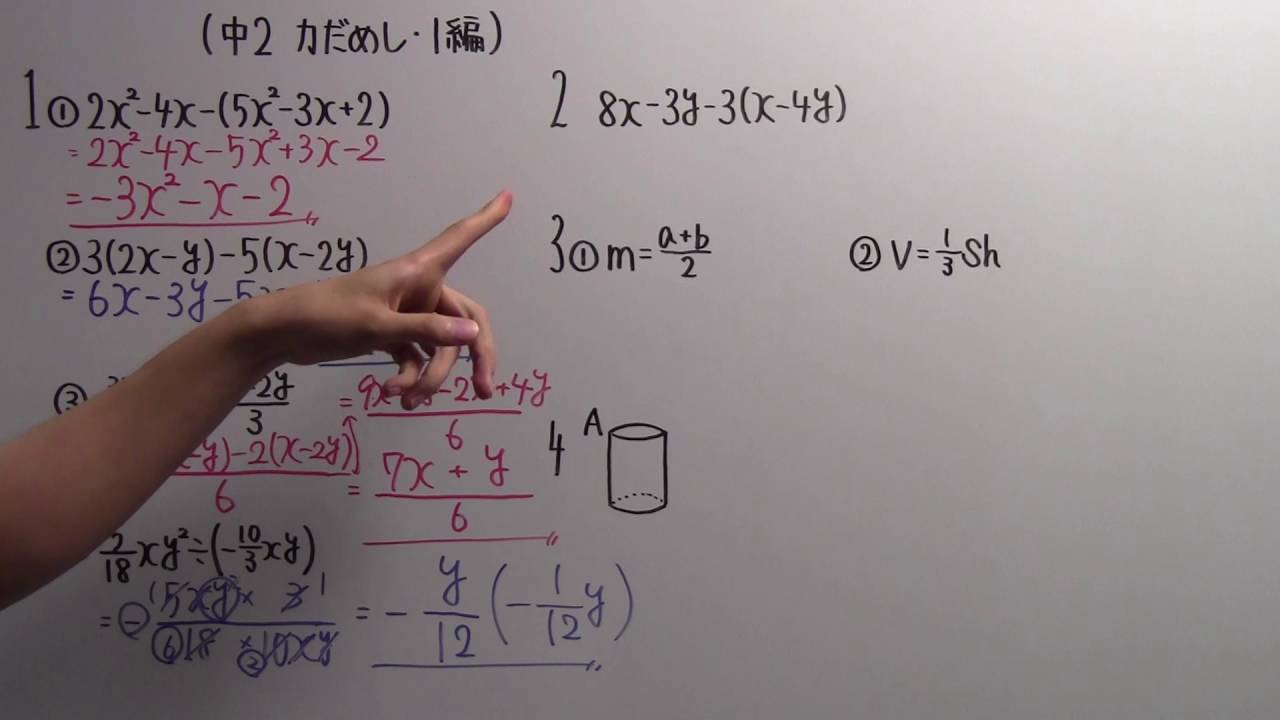 (中2 力だめし・1編)
1 ① 2x²-4x-(5x²-3x+2)
= 2x²-4x-5x²+3x-2
= -3x²-x-2
② 3(2x-y)-5(x-2y)
= 6x-3y-5
③ 2y/3
-y)-2(x-2y)/6
= -2x+4y/6
= 7x+y/6
/18 xy²÷(-10/3 xy)
= - 5xy² × 3 / 18 × 10xy
= - y/12 (-1/12 y)
2 8x-3y-3(x-4y)
3 ① m=a+b/2 ② V=1/3 Sh
4 A